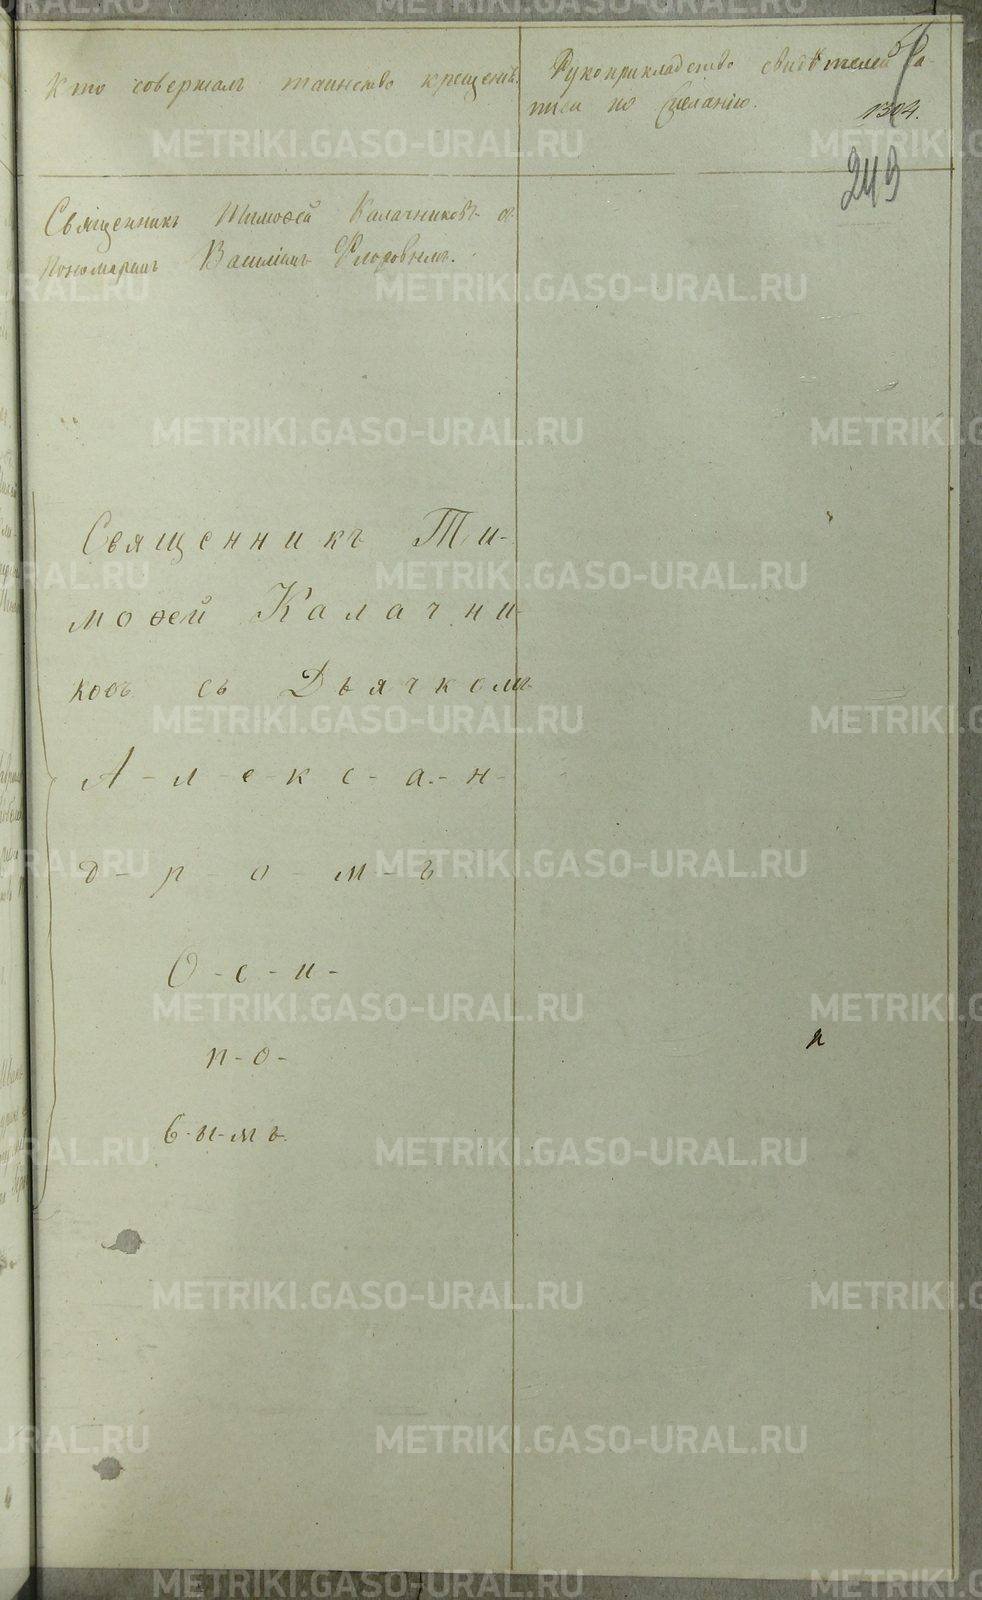 Кто совершалъ таинство крещенія.
Рукоприкладство свидѣтелей за-
писи по желанію.
1304.
249
Священникъ Тимоѳей Калачниковъ съ
Пономаремъ Василіемъ Флоровымъ.
Священникъ Ти-
моѳей Калачни-
ковъ съ Дьячкомъ
А-л-е-к-с-а-н-
д-р-о-м-ъ
О-с-и-
п-о-
в-ы-мъ.
METRIKI.GASO-URAL.RU